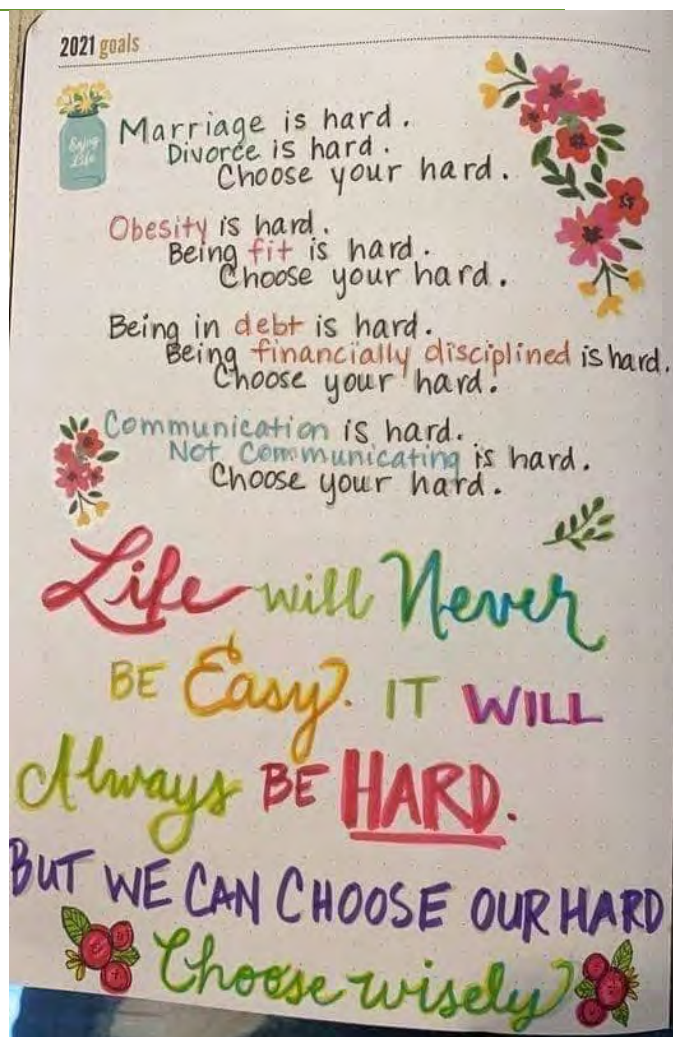 2021 goals
Enjoy
Life
Marriage is hard.
Divorce is hard.
Choose your hard.
Obesity is hard.
Being fit is hard.
Choose your hard.
Being in debt is hard.
Being financially disciplined is hard.
Choose your hard.
Communication is hard.
Not Communicating is hard.
Choose your hard.
Life will Never
BE Easy. IT WILL
Always BE HARD.
BUT WE CAN CHOOSE OUR HARD
Choose wisely